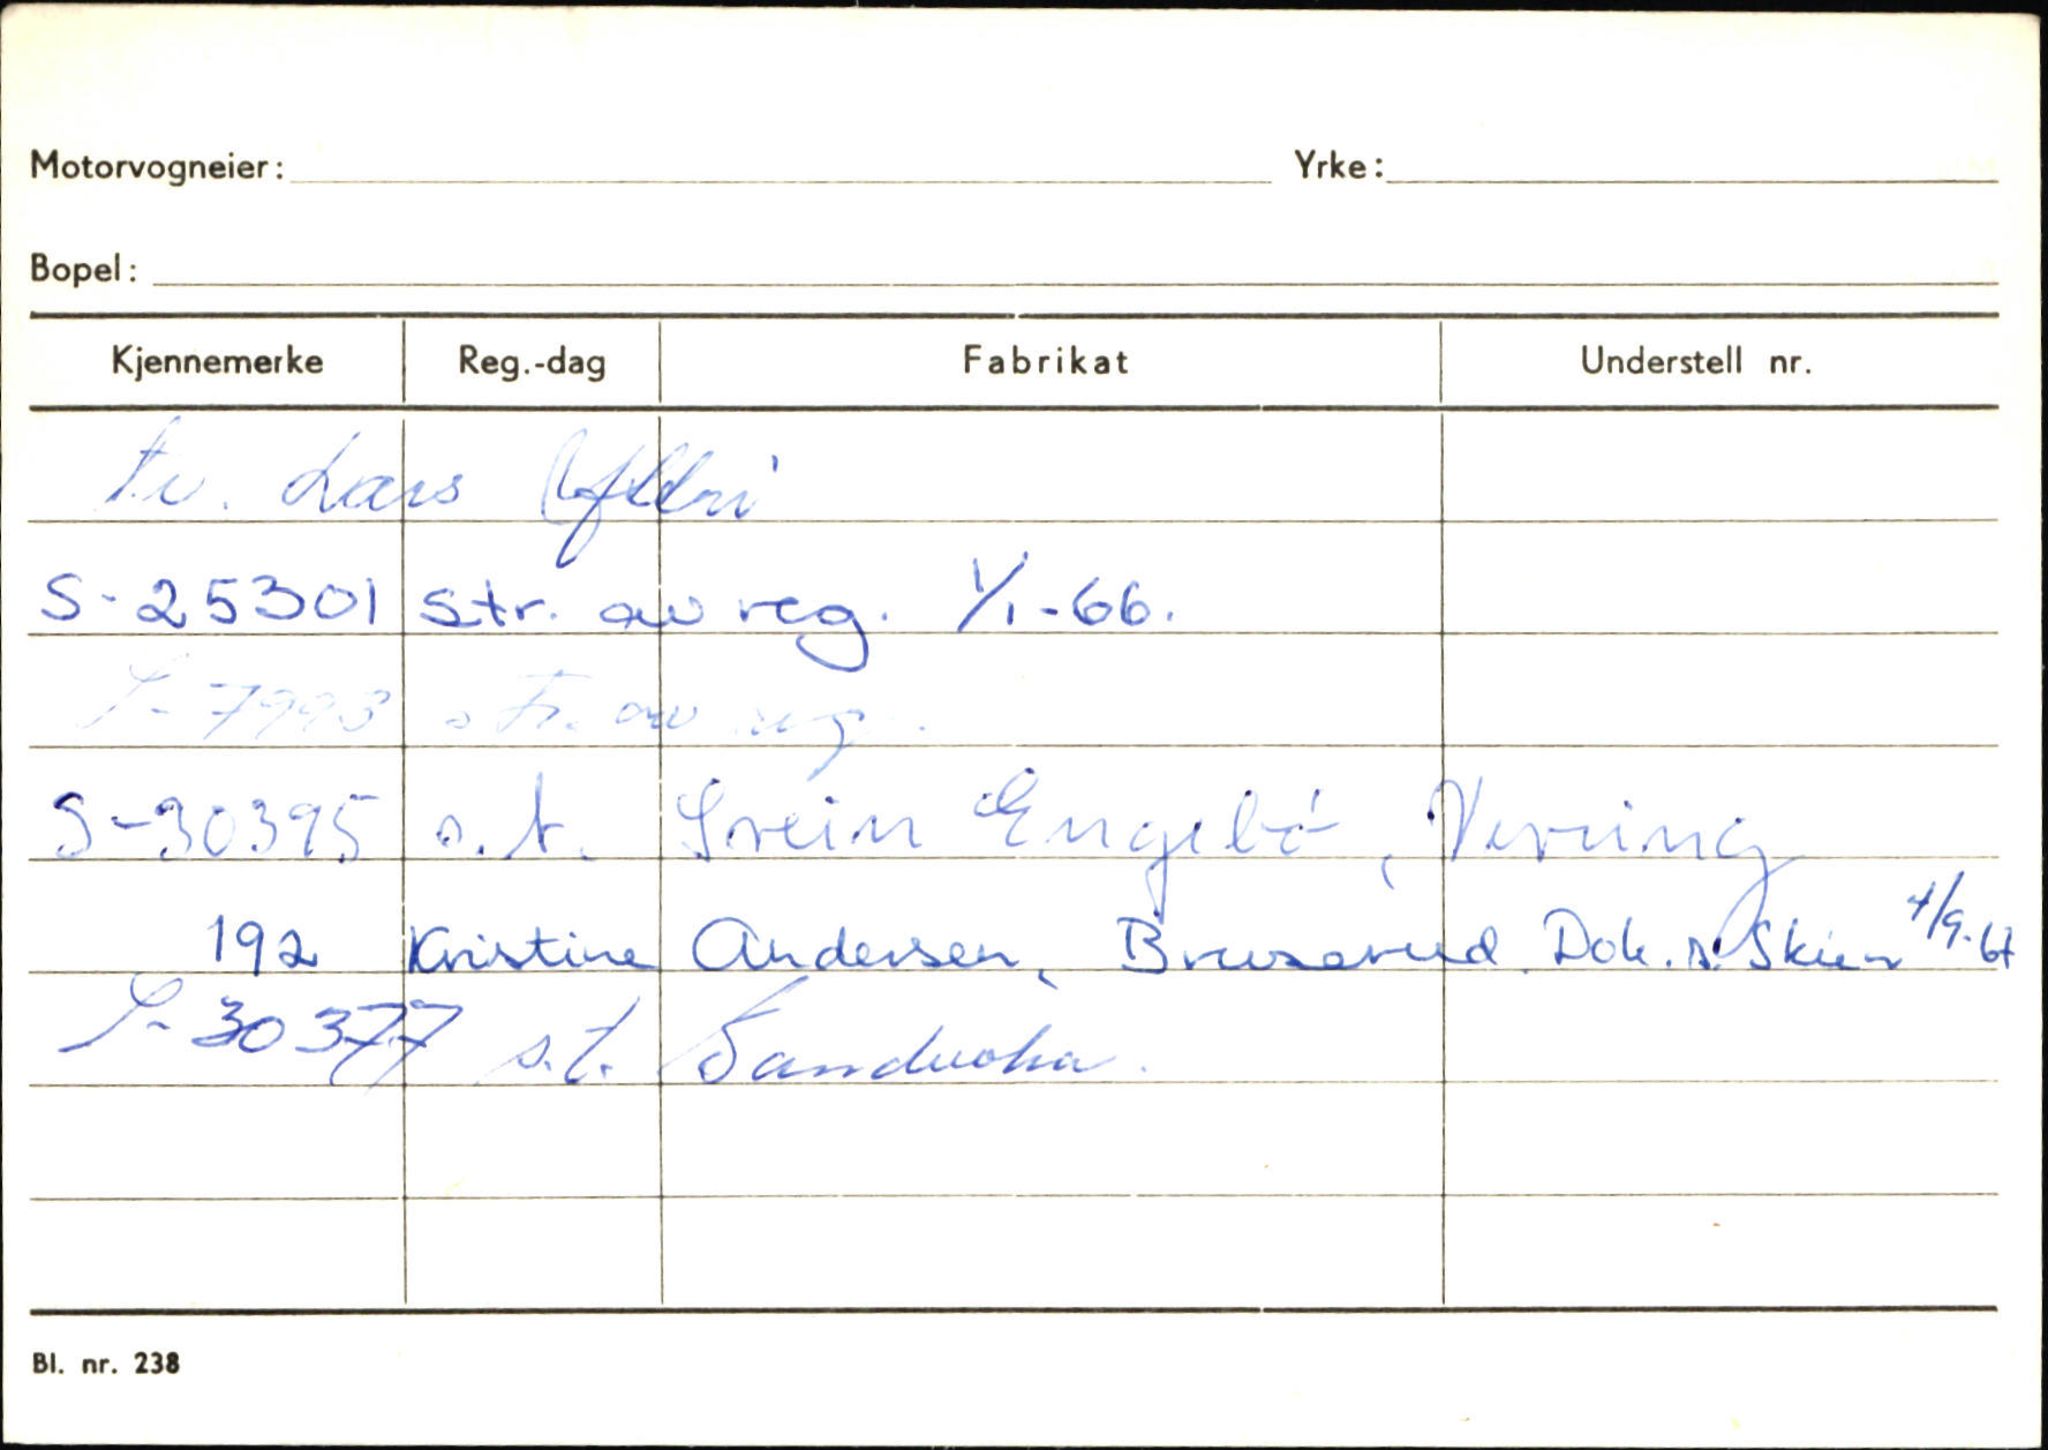 Motorvogneier: Yrke:
Bopel:
Kjennemerke Reg.-dag Fabrikat Understell nr.
Lars
S-25301 str. av reg. 1/1-66.
S-7993 str. av reg.
S-30395 s.t. Svein Engebø, Vevring
192 Kristine Andersen, Bruserud. Dok. s. Skien 4/9-67
S-30377 s.t.
Bl. nr. 238